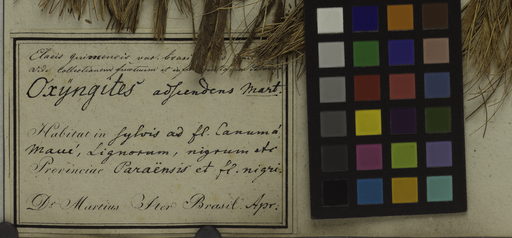 Elaeis guineensis var. brasi
vide Collectianeus
Oxÿngites adscendens Mart.
Habitat in sylvis ad fl. Canumá
Maué, Lignorum, nigrum etc
Provinciae Paraënsis et fl. nigri.
Dr. Martius Iter Brasil. Apr: